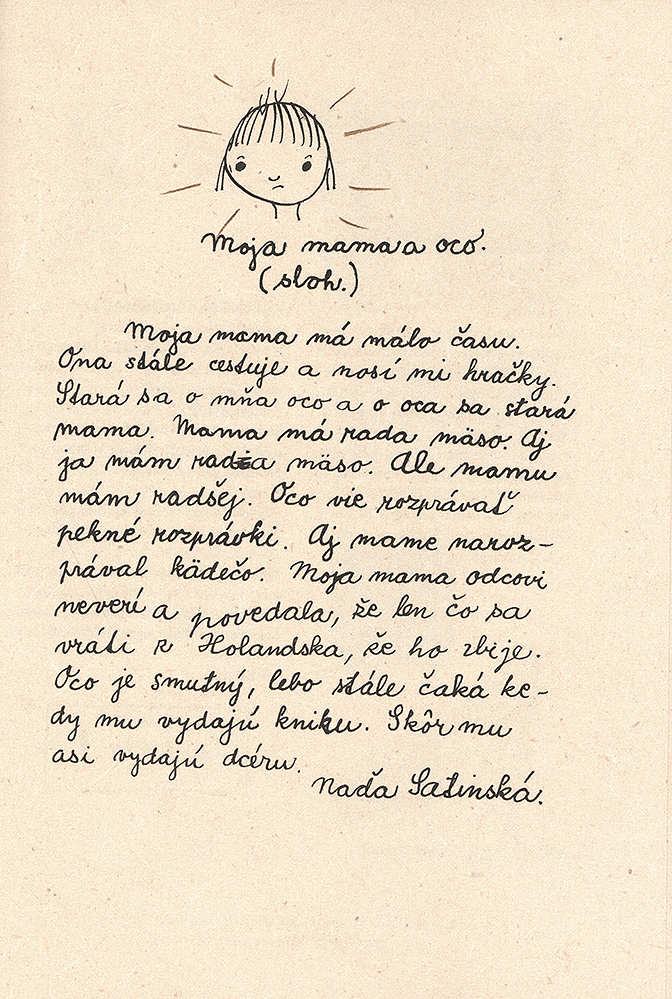 Moja mama a oco.
(sloh.)
Moja mama má málo času.
Ona stále cestuje a nosí mi hračky.
Stará sa o mňa oco a o oca sa stará
mama. Mama má rada mäso. Aj
ja mám radza mäso. Ale mamu
mám radšej. Oco vie rozprávať
pekné rozprávki. Aj mame naroz-
prával kädečo. Moja mama odcovi
neverí a povedala, že len čo sa
vráti z Holandska, že ho zbije.
Oco je smutný, lebo stále čaká ke-
dy mu vydajú kniku. Skôr mu
asi vydajú dcéru.
Naďa Satinská.